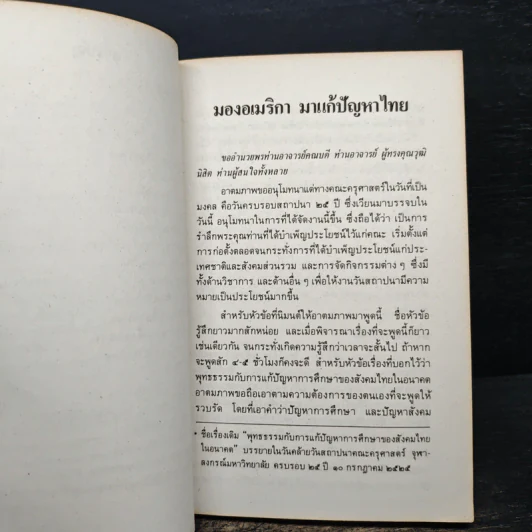 มองอเมริกา มาแก้ปัญหาไทย
ขออำนวยพรท่านอาจารย์คณบดี ท่านอาจารย์ ผู้ทรงคุณวุฒิ
นิสิต ท่านผู้สนใจทั้งหลาย
อาตมภาพขออนุโมทนาแด่ทางคณะครุศาสตร์ในวันที่เป็น
มงคล คือวันครบรอบสถาปนา ๒๕ ปี ซึ่งเวียนมาบรรจบใน
วันนี้ อนุโมทนาในการที่ได้จัดงานนี้ขึ้น ซึ่งถือได้ว่า เป็นการ
รำลึกพระคุณท่านที่ได้บำเพ็ญประโยชน์ไว้แก่คณะ เริ่มตั้งแต่
การก่อตั้งตลอดจนกระทั่งการที่ได้บำเพ็ญประโยชน์แก่ประ-
เทศชาติและสังคมส่วนรวม และการจัดกิจกรรมต่าง ๆ ซึ่งมี
ทั้งด้านวิชาการ และด้านอื่น ๆ เพื่อให้งานวันสถาปนามีความ
หมายเป็นประโยชน์มากขึ้น
สำหรับหัวข้อที่นิมนต์ให้อาตมภาพมาพูดนี้ ชื่อหัวข้อ
รู้สึกยาวมากสักหน่อย และเมื่อพิจารณาเรื่องที่จะพูดนี้ก็ยาว
เช่นเดียวกัน จนกระทั่งเกิดความรู้สึกว่าเวลาจะสั้นไป ถ้าหาก
จะพูดสัก ๔-๕ ชั่วโมงก็คงจะดี สำหรับหัวข้อเรื่องที่บอกไว้ว่า
พุทธธรรมกับการแก้ปัญหาการศึกษาของสังคมไทยในอนาคต
อาตมภาพขอถือเอาตามความต้องการของตนเองที่จะพูดให้
รวบรัด โดยที่เอาคำว่าปัญหาการศึกษา และปัญหาสังคม
* ชื่อเรื่องเดิม "พุทธธรรมกับการแก้ปัญหาการศึกษาของสังคมไทย
ในอนาคต" บรรยายในวันคล้ายวันสถาปนาคณะครุศาสตร์ จุฬา-
ลงกรณ์มหาวิทยาลัย ครบรอบ ๒๕ ปี ๑๐ กรกฎาคม ๒๕๒๕